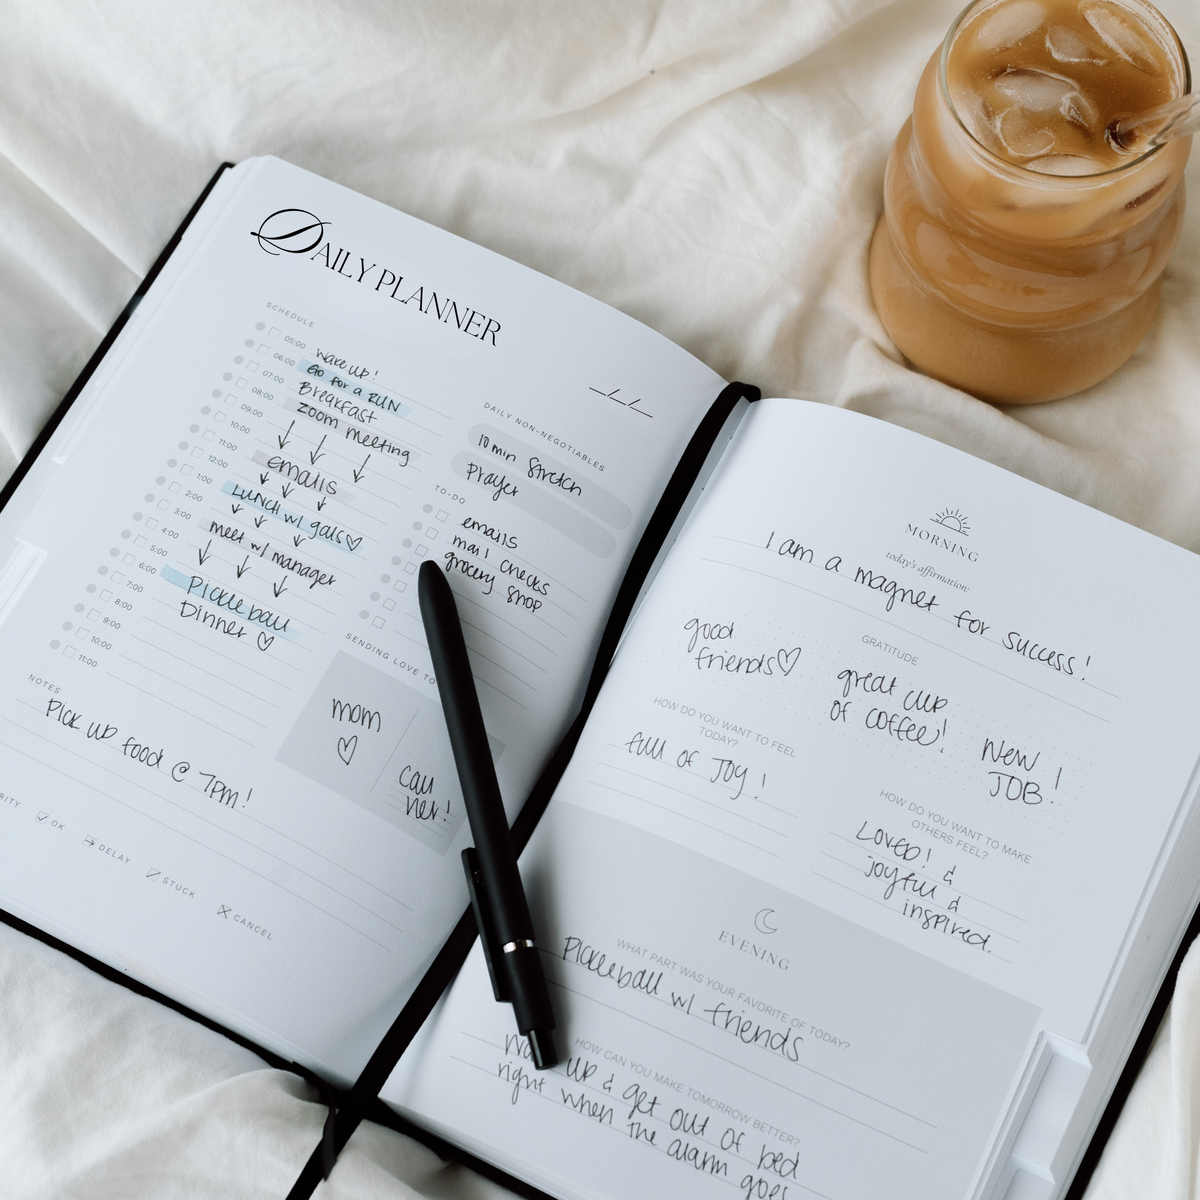 DAILY PLANNER
SCHEDULE
05:00 wake up!
06:00 Go for a RUN
07:00 Breakfast
08:00 zoom meeting
09:00
10:00
11:00 emails
12:00
1:00 LUNCH w/ gals♡
2:00
3:00 meet w/ manager
4:00
5:00
6:00 Pickleball
7:00 Dinner ♡
8:00
9:00
10:00
11:00
DAILY NON-NEGOTIABLES
10 min stretch
Prayer
TO-DO
emails
mail checks
grocery shop
SENDING LOVE TO
mom
♡
call
her!
NOTES
Pick up food @ 7pm!
OK
DELAY
STUCK
CANCEL
MORNING
today's affirmation:
I am a magnet for success!
GRATITUDE
good
friends♡
great cup
of coffee!
New
JOB!
HOW DO YOU WANT TO FEEL
TODAY?
full of Joy!
HOW DO YOU WANT TO MAKE
OTHERS FEEL?
LOVED! &
joyful &
inspired.
EVENING
WHAT PART WAS YOUR FAVORITE OF TODAY?
Pickleball w/ friends
HOW CAN YOU MAKE TOMORROW BETTER?
up & get out of bed
right when the alarm goes